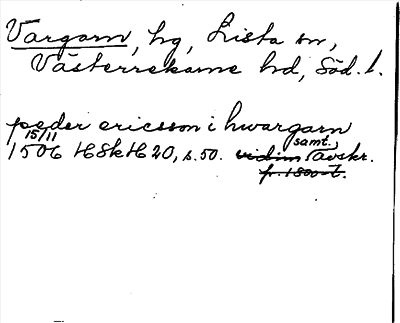 Vargarn, hg, Lista sn,
Västerrekarne hd, Söd. l.
peder ericsson i hwargarn
15/11 samt.
1506 HSkH 20, s. 50. vidim avskr.
fr. 1800-t.